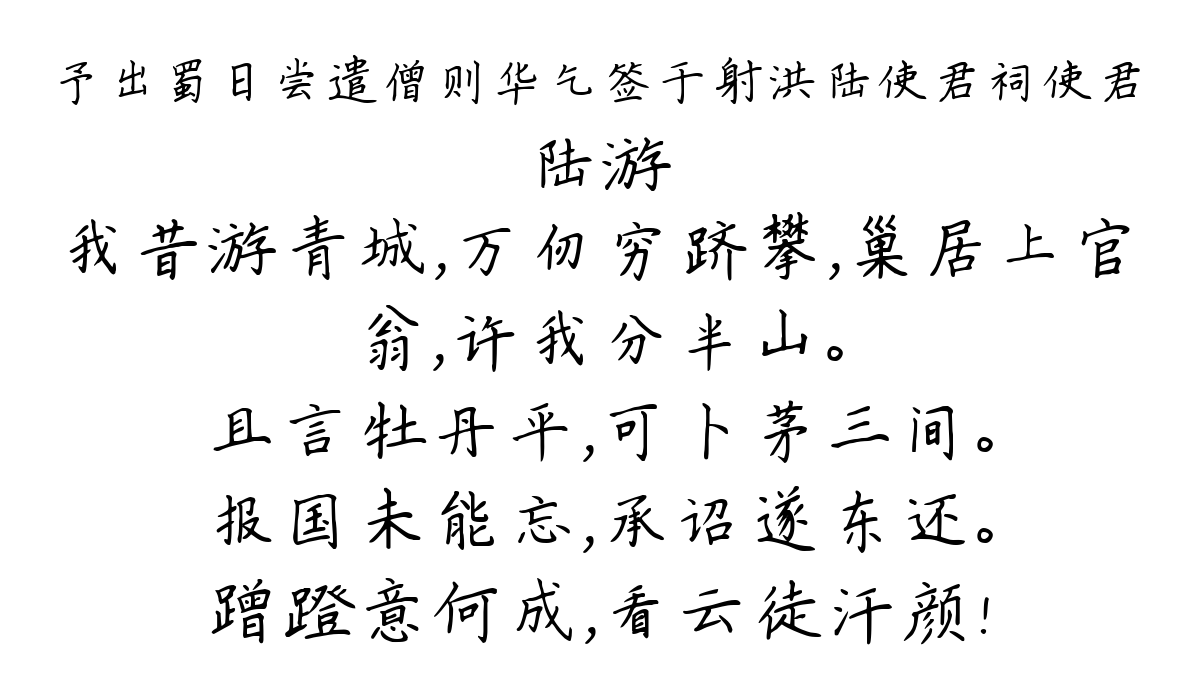 予出蜀日尝遣僧则华乞签于射洪陆使君祠使君
陆游
我昔游青城,万仞穷跻攀,巢居上官
翁,许我分半山。
且言牡丹平,可卜茅三间。
报国未能忘,承诏遂东还。
蹭蹬意何成,看云徒汗颜!